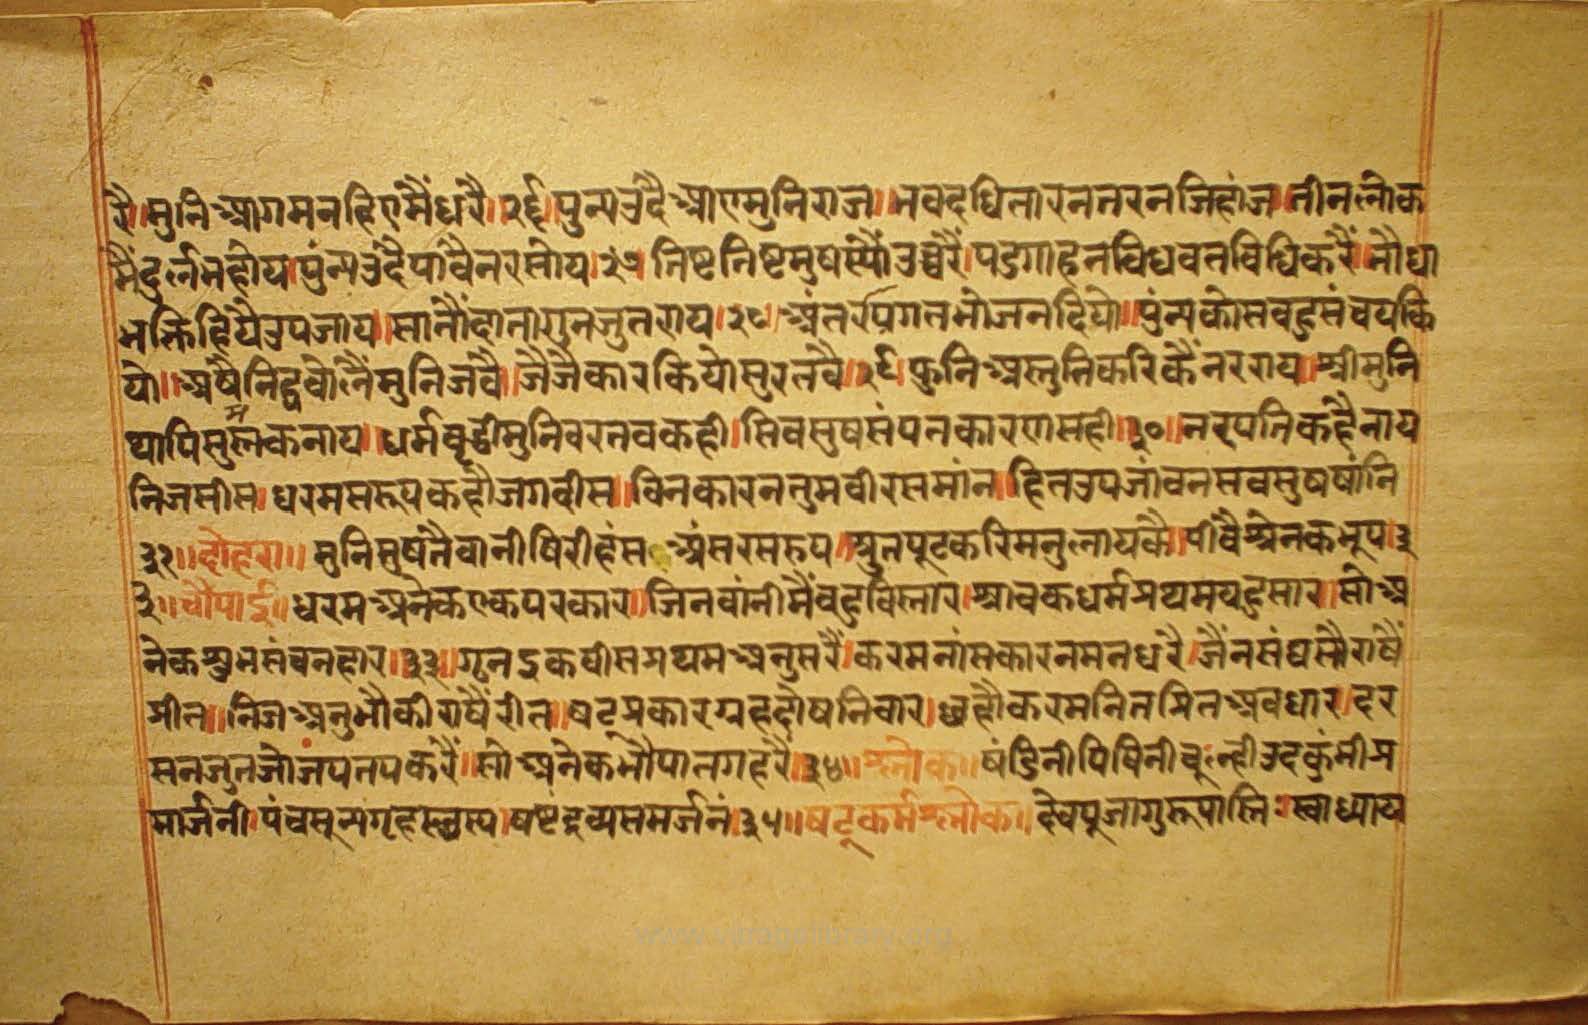 रै॥मुनिआगमनहिएमैंधरै॥२६॥पुन्यउदैआएमुनिराज॥भवदधितारनतरनजिहांज॥तीनलोक
मैंदुर्लभहोय॥पुंन्यउदैपावैनरसोय॥२७॥तिष्टतिष्टमुषस्यौंउच्चरैं॥पडगाहनविधवतविधिकरैं॥नौधा
भक्तिहियैउपजाय॥सातौंदातागुनजुतराय॥२८॥अंतर्रप्रगतभोजनदियो॥पुंन्यकोसबहुसंचयकि
यो॥अषैनिद्धबोलैंमुनिजबै॥जैजैकारकियोसुरतबै॥२९॥फुनिअस्तुतिकरिकैंनरराय॥श्रीमुनि
थापिसुलकनाय॥धर्मवृद्धीमुनिवरतवकही॥सिवसुषसंपतकारणसही॥३०॥नरपतिकहैनाय
निजसीस॥धरमसरूपकहौजगदीस॥विनकारनतुमवीरसमांन॥हितउपजांवनसवसुषषांनि
३२॥दोहरा॥मुनिसुषतैवानीषिरीहंस अंसरसरूप॥श्रुतपूटकरिमनुलायकै॥पीवैश्रेनकभूप॥३
३॥चौपाई॥धरमअनेकएकपरकार॥जिनवांनीमैंबहुविस्तार॥श्रावकधर्मप्रथमयहुसार॥सोअ
नेकशुभसंचनहार॥३३॥गृनइकवीसप्रथमअनुसरैं॥करमनांसकारनमनधरै॥जैंनसंघसौराषैं
प्रीत॥निजअनुभौकीराषैंरीत॥षटप्रकारग्रहदोषनिवार॥छहौकरमनितप्रितअवधार॥दर
सनजुतजोजंपतपकरैं॥सोअनेकभौपातगहरै॥३४॥श्लोक॥षंडिनीपिषिनीचूल्हीउदकुंभीप्र
मार्जनी॥पंचसून्यगृहस्थस्य॥षष्टंद्रव्यसमर्जनं॥३५॥षट्कर्मश्लोक॥देवपूजागुरूपास्ति॥स्वाध्याय
www.vitragelibrary.org